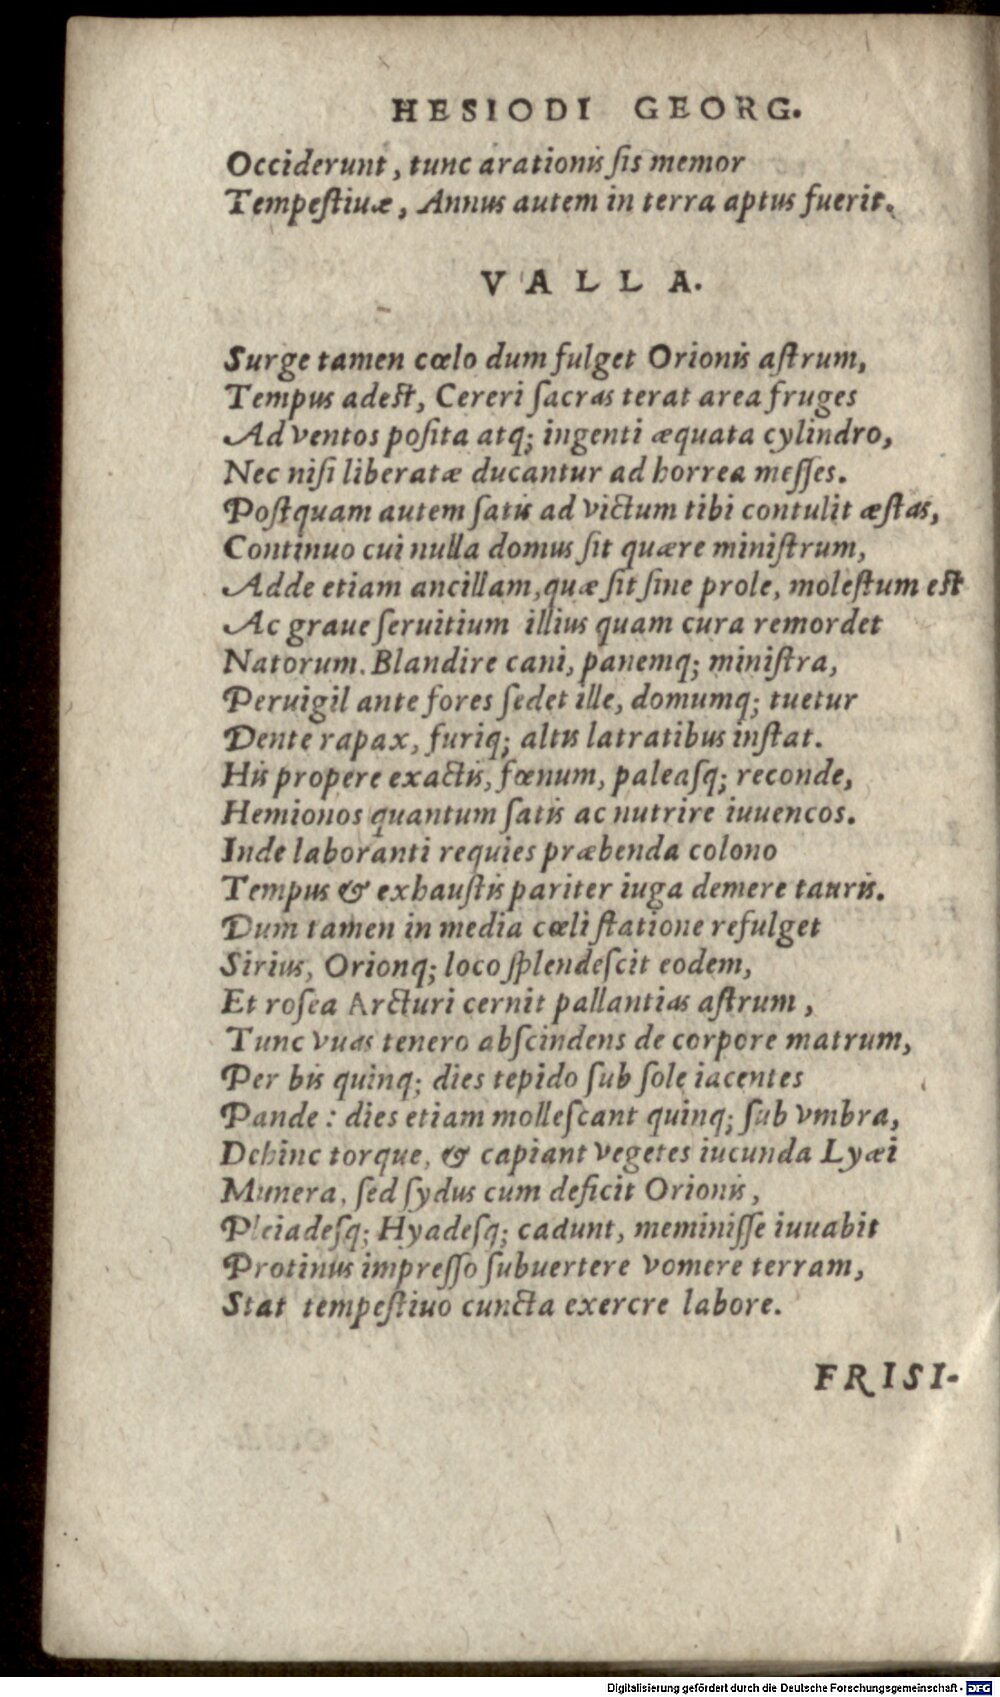 HESIODI GEORG.
Occiderunt, tunc arationis ſis memor
Tempeſtiuæ, Annus autem in terra aptus fuerit.
VALLA.
Surge tamen cœlo dum fulget Orionis aſtrum,
Tempus adeſt, Cereri ſacras terat area fruges
Ad ventos poſita atq; ingenti æquata cylindro,
Nec niſi liberatæ ducantur ad horrea meſſes.
Poſtquam autem ſatis ad victum tibi contulit æſtas,
Continuo cui nulla domus ſit quære miniſtrum,
Adde etiam ancillam, quæ ſit ſine prole, moleſtum eſt
Ac graue ſeruitium illius quam cura remordet
Natorum. Blandire cani, panemq; miniſtra,
Peruigil ante fores ſedet ille, domumq; tuetur
Dente rapax, furiq; altis latratibus inſtat.
His propere exactis, fœnum, paleaſq; reconde,
Hemionos quantum ſatis ac nutrire iuuencos.
Inde laboranti requies præbenda colono
Tempus & exhauſtis pariter iuga demere tauris.
Dum tamen in media cœli ſtatione refulget
Sirius, Orionq; loco ſplendeſcit eodem,
Et roſea Arcturi cernit pallantias aſtrum,
Tunc vuas tenero abſcindens de corpore matrum,
Per bis quinq; dies tepido ſub ſole iacentes
Pande: dies etiam molleſcant quinq; ſub vmbra,
Dehinc torque, & capiant vegetes iucunda Lyæi
Munera. ſed ſydus cum deficit Orionis,
Pleiadeſq; Hyadeſq; cadunt, meminiſſe iuuabit
Protinus impreſſo ſubuertere vomere terram,
Stat tempeſtiuo cuncta exercre labore.
FRISI-
Digitalisierung gefördert durch die Deutsche Forschungsgemeinschaft - DFG